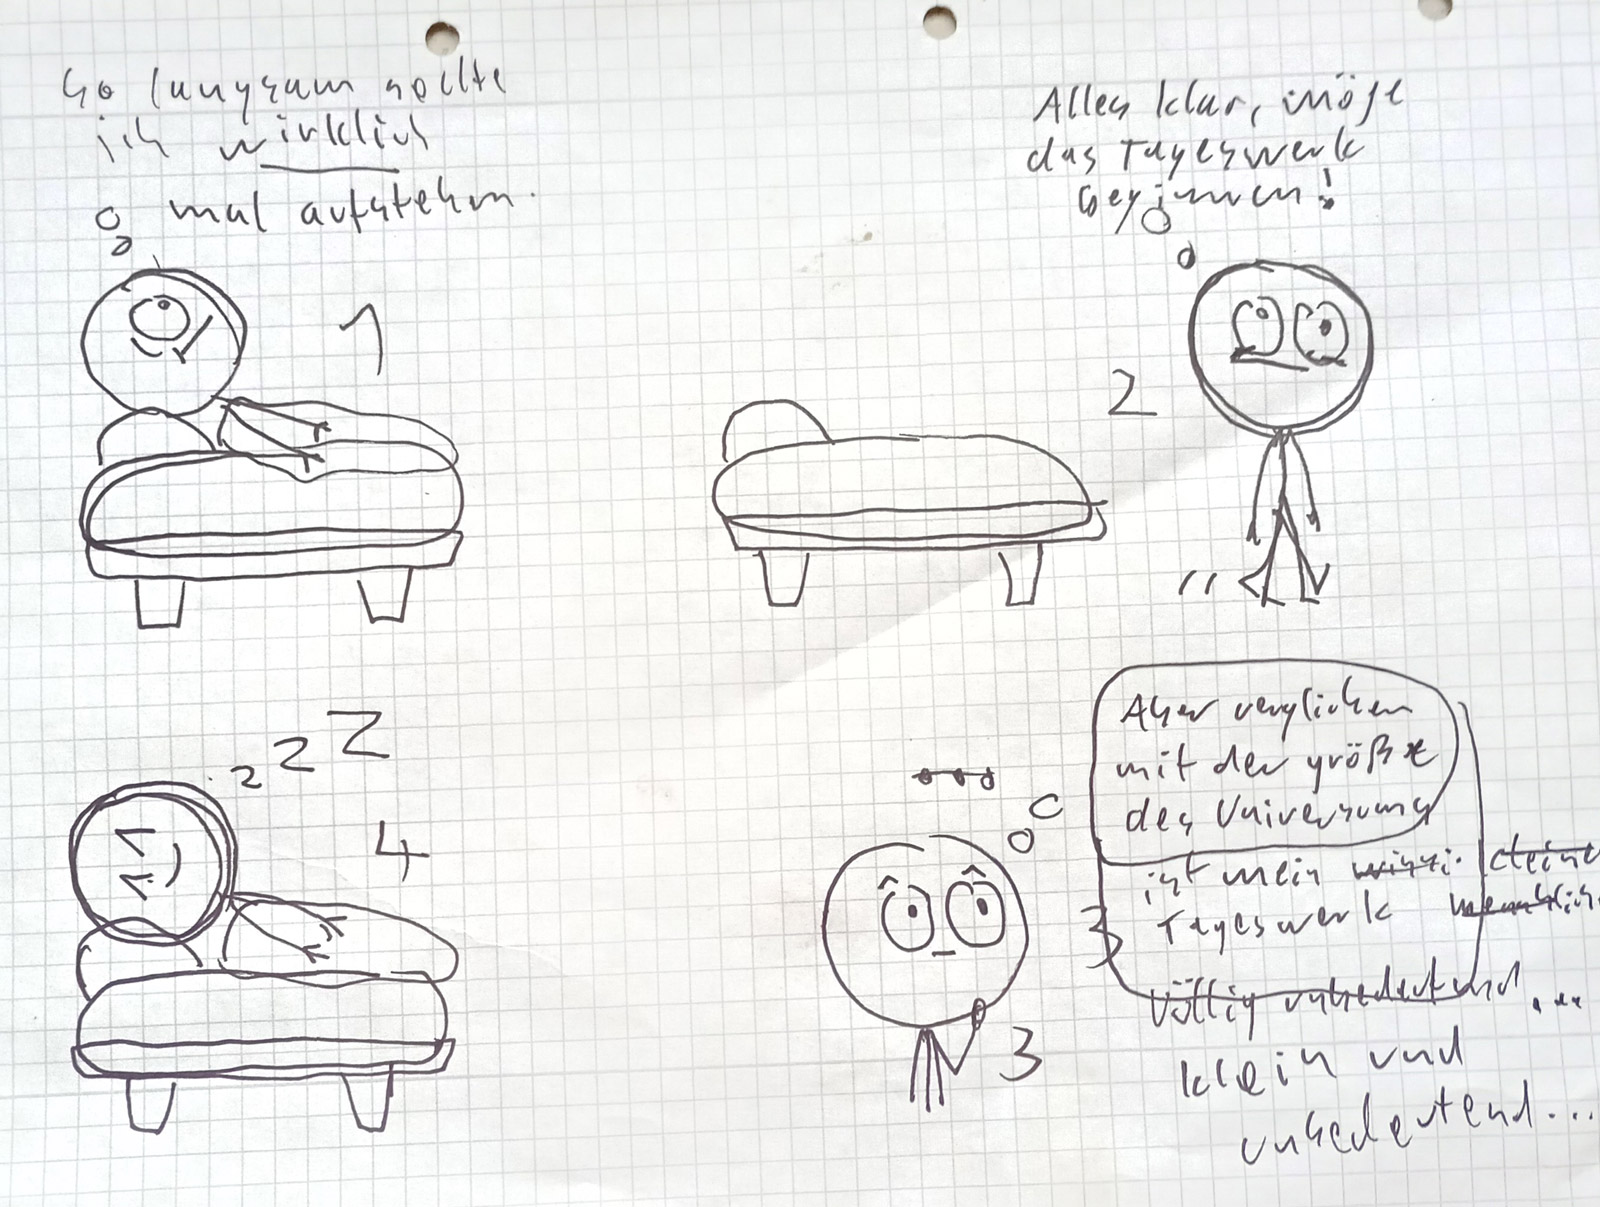 So langsam sollte
ich wirklich
mal aufstehen.
1
Alles klar, möge
das Tageswerk
beginnen!
2
Aber verglichen
mit der größe
des Universums
ist mein winzi
Tageswerk
völlig unbedeutend...
klein und
unbedeutend...
3
3
z z Z
4